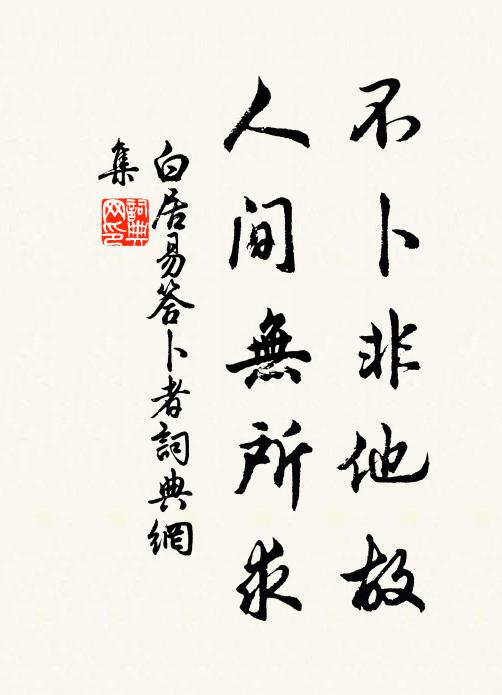 不卜非他故
人间無所求
白居易答卜者詞典網
集
詞典
网印